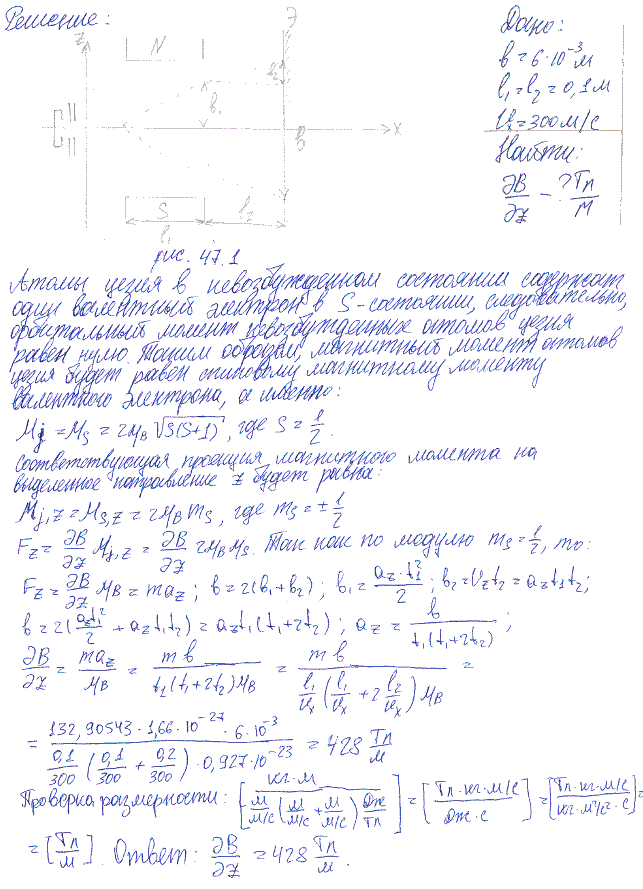 Решение:
Z
N
Э
b₂
b₁
x
b
S
l₁
l₂
рис. 47.1
Дано:
b = 6·10⁻³ м
l₁ = l₂ = 0,1 м
Vx = 300 м/с
Найти:
∂B/∂z - ? Тл/м
Атомы цезия в невозбужденном состоянии содержат
один валентный электрон в S-состоянии, следовательно,
орбитальный момент невозбужденных атомов цезия
равен нулю. Таким образом, магнитный момент атомов
цезия будет равен спиновому магнитному моменту
валентного электрона, а именно:
Mj = Ms = 2μB √S(S+1), где S = 1/2.
Соответствующая проекция магнитного момента на
выделенное направление z будет равна:
Mj,z = Ms,z = 2μB ms, где ms = ± 1/2
Fz = ∂B/∂z Mj,z = ∂B/∂z 2μB ms. Так как по модулю ms = 1/2, то:
Fz = ∂B/∂z μB = maz; b = 2(b₁+b₂); b₁ = az·t₁²/2; b₂ = Vz t₂ = az t₁ t₂;
b = 2(az t₁²/2 + az t₁ t₂) = az t₁(t₁+2t₂); az = b/(t₁(t₁+2t₂));
∂B/∂z = maz/μB = mb/(t₁(t₁+2t₂)μB) = mb/(l₁/Vx (l₁/Vx + 2 l₂/Vx) μB) =
= 132,90543·1,66·10⁻²⁷·6·10⁻³/(0,1/300 (0,1/300 + 0,2/300)·0,927·10⁻²³) = 428 Тл/м
Проверка размерности: [кг·м/(м/м/с (м/м/с + м/м/с) Дж/Тл)] = [Тл·кг·м/с/(Дж·с)] = [Тл·кг·м/с/(кг·м²/с²·с)] =
= [Тл/м]. Ответ: ∂B/∂z = 428 Тл/м.